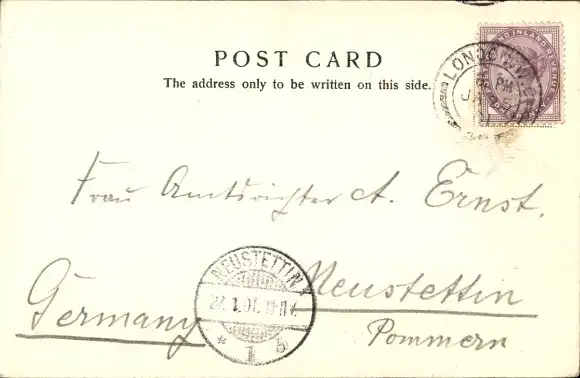 POST CARD
The address only to be written on this side.
LONDON
PM
JA
INLAND REVENUE
Frau Amtsrichter A. Ernst.
Neustettin
Germany
Pommern
NEUSTETTIN
1.01.